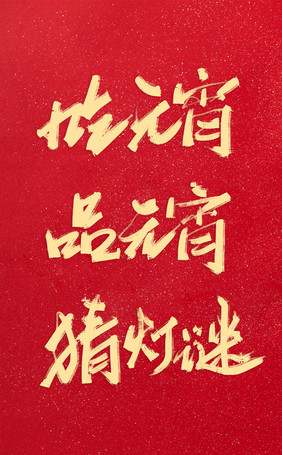 吃元宵
品元宵
猜灯谜